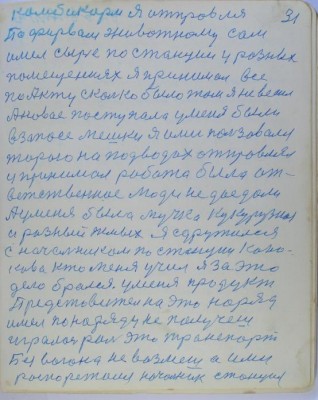 комбикорм я отпровля 31
По фирвам животному сам
имел сырье по станции у розних
помещениях я принимал все
по Акту сколко было том я не весил
А новое поступала у меня были
в запосе мешки я ими ползовалс
на подводах отпровлял
и принимал робота была от-
ветственное люди не доедали
А у меня была мука кукурузная
и розный жмых я сдружился
с началником по станции
кто меня учил я за это
дело бролся. у меня продукт
Предстовител на это норяд
имел по наряду не получеш
играл рол это транспорт
Бу вогона не возмеш а ими
роспорежался началник станции